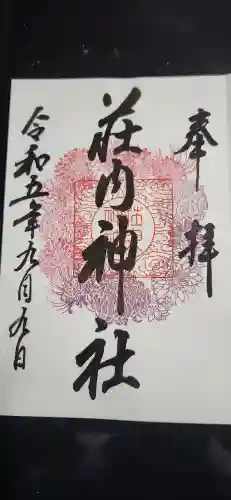 奉拝
荘内神社
令和五年九月九日